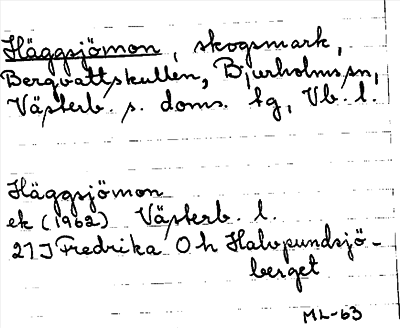 Häggsjömon, skogsmark,
Bergvattskullen, Bjurholms sn,
Västerb. s. doms. tg, Vb. l.
Häggsjömon
ek (1962) Västerb. l.
21J Fredrika Oh Halvpundsjö-
berget
ML-63